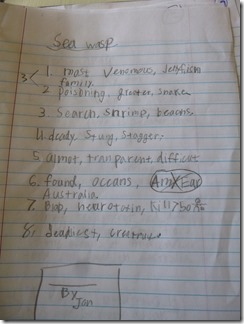 Sea wasp
3 < 1. most venomous, Jellyfish
family.
2. poisoning, greater, snake
3. Search, shrimp, beachs
4. deady, stung, stagger,
5. almot, transparent, difficut
6. found, oceans,
Australia.
7. Blob, kill > 50
8. deadlest,
By
Jan